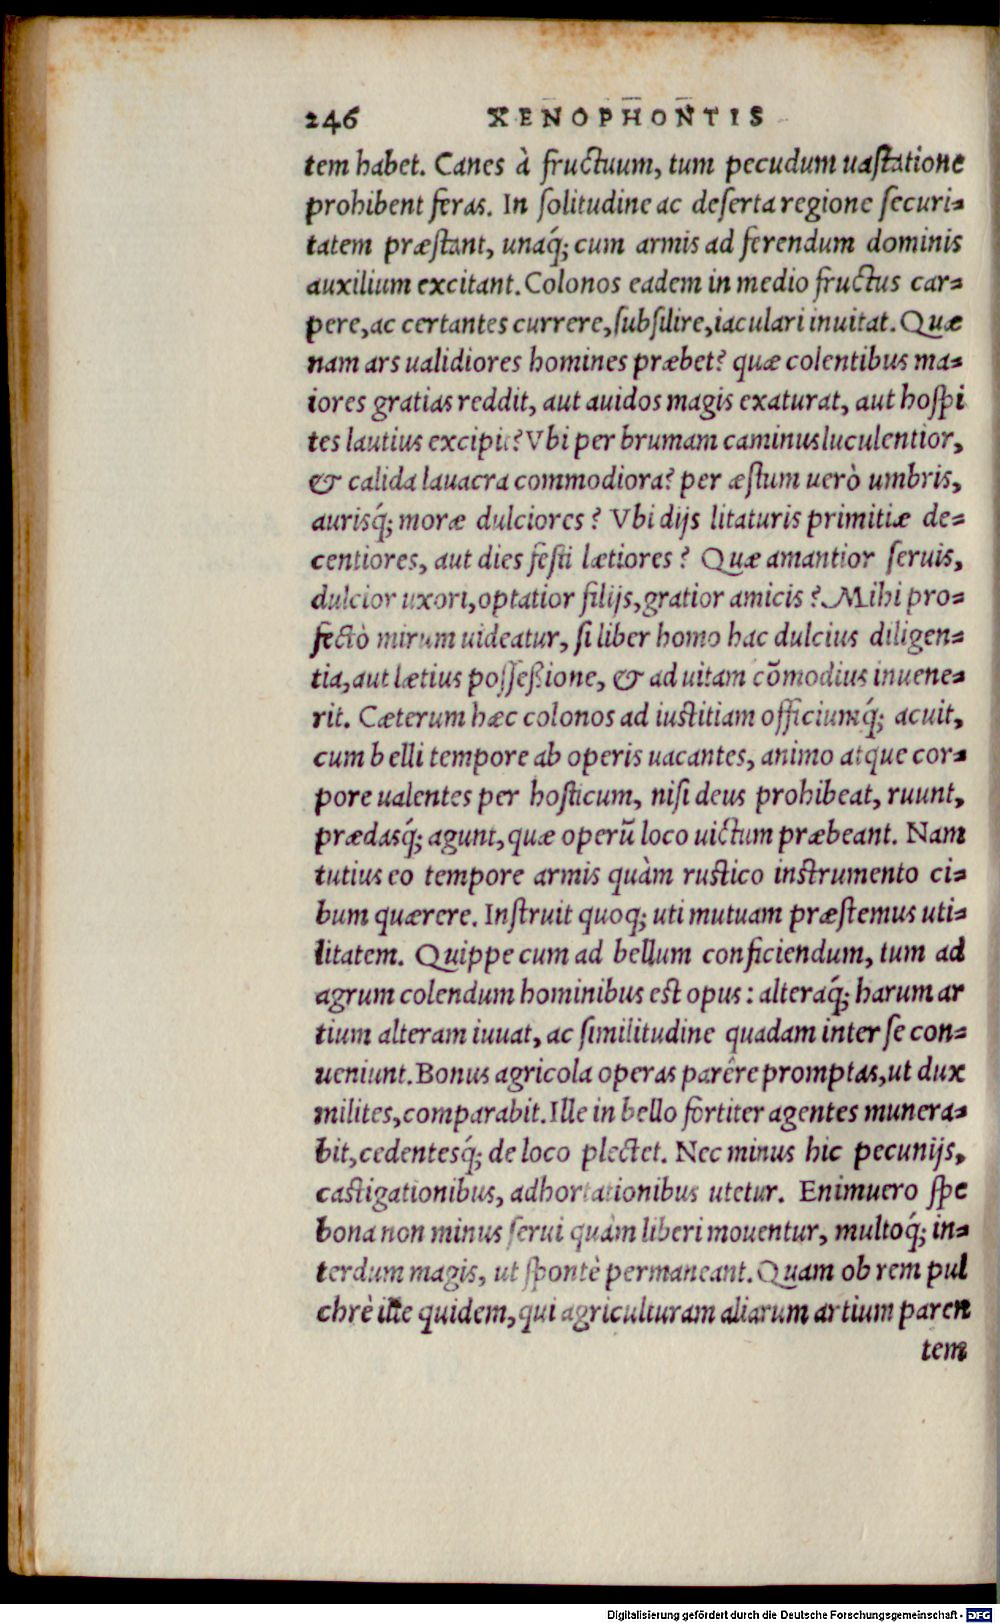 246 XENOPHONTIS
tem habet. Canes à fructuum, tum pecudum uastatione
prohibent feras. In solitudine ac deserta regione securi=
tatem præstant, unaq́; cum armis ad ferendum dominis
auxilium excitant. Colonos eadem in medio fructus car=
pere, ac certantes currere, subsilire, iaculari inuitat. Quæ
nam ars ualidiores homines præbet? quæ colentibus ma=
iores gratias reddit, aut auidos magis exaturat, aut hospi
tes lautius excipit? Vbi per brumam caminus luculentior,
& calida lauacra commodiora? per æstum uerò umbris,
aurisq́; moræ dulciores? Vbi dijs litaturis primitiæ de=
centiores, aut dies festi lætiores? Quæ amantior seruis,
dulcior uxori, optatior filijs, gratior amicis? Mihi pro=
fectò mirum uideatur, si liber homo hac dulcius diligen=
tia, aut lætius posseßione, & ad uitam cõmodius inuene=
rit. Cæterum hæc colonos ad iustitiam officiumq́; acuit,
cum belli tempore ab operis uacantes, animo atque cor=
pore ualentes per hosticum, nisi deus prohibeat, ruunt,
prædasq́; agunt, quæ operũ loco uictum præbeant. Nam
tutius eo tempore armis quàm rustico instrumento ci=
bum quærere. Instruit quoq; uti mutuam præstemus uti=
litatem. Quippe cum ad bellum conficiendum, tum ad
agrum colendum hominibus est opus: alteraq́; harum ar
tium alteram iuuat, ac similitudine quadam inter se con=
ueniunt. Bonus agricola operas parêre promptas, ut dux
milites, comparabit. Ille in bello fortiter agentes munera=
bit, cedentesq́; de loco plectet. Nec minus hic pecunijs,
castigationibus, adhortationibus utetur. Enimuero spe
bona non minus serui quàm liberi mouentur, multoq́; in=
terdum magis, ut spontè permaneant. Quam ob rem pul
chrè ille quidem, qui agriculturam aliarum artium paren
tem
Digitalisierung gefördert durch die Deutsche Forschungsgemeinschaft - DFG